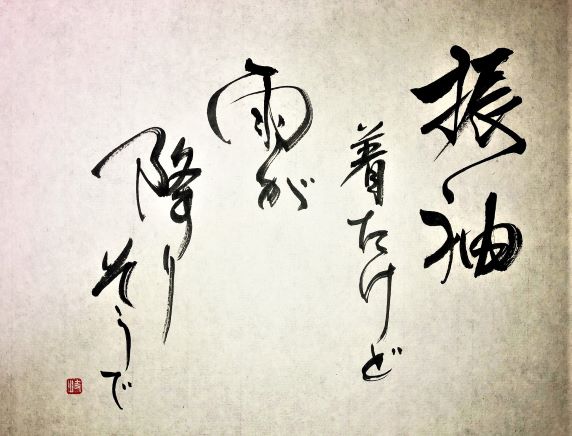 振袖
着たけど
雨が
降り
そうで